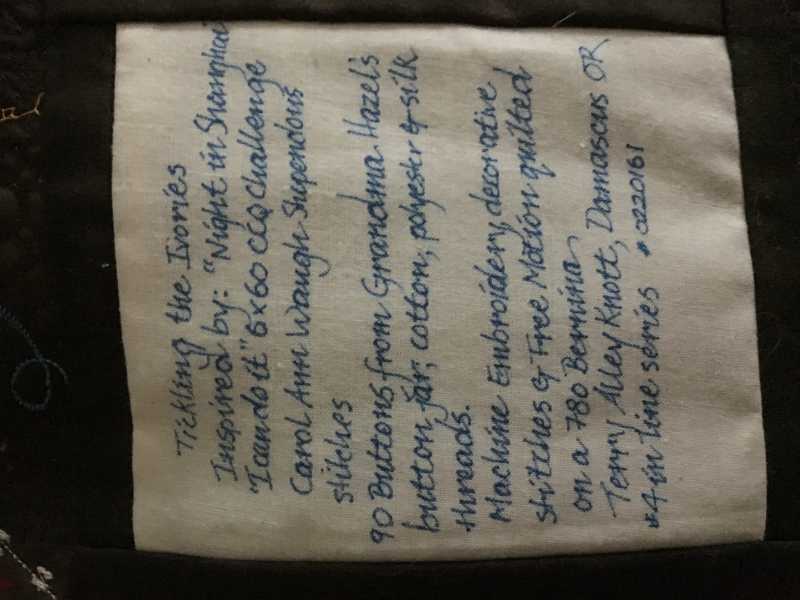 Tickling the Ivories
Inspired by: "Night in Shanghai
"I can do it" 6x60 CCQ Challenge
Carol Ann Waugh Stupendous
stitches
90 Buttons from Grandma Hazel's
button jar; cotton, polyester & silk
threads.
Machine Embroidery, decorative
stitches & Free Motion quilted
on a 780 Bernina
Terry Alley Knott, Damascus OR
*4 in line series #0220161